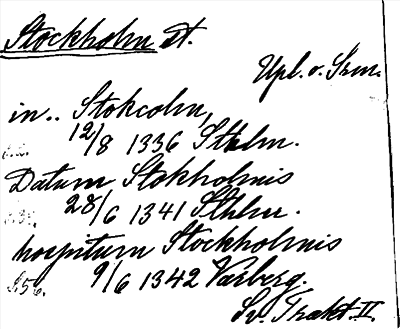 Stockholm st.
Upl. o. Srm.
in.. Stokcolm,
12/8 1336 Sthlm.
Datum Stokholmis
28/6 1341 Sthlm.
hospitum Stockholmis
S.56. 9/6 1342 Varberg.
Sv. Trakt. II.